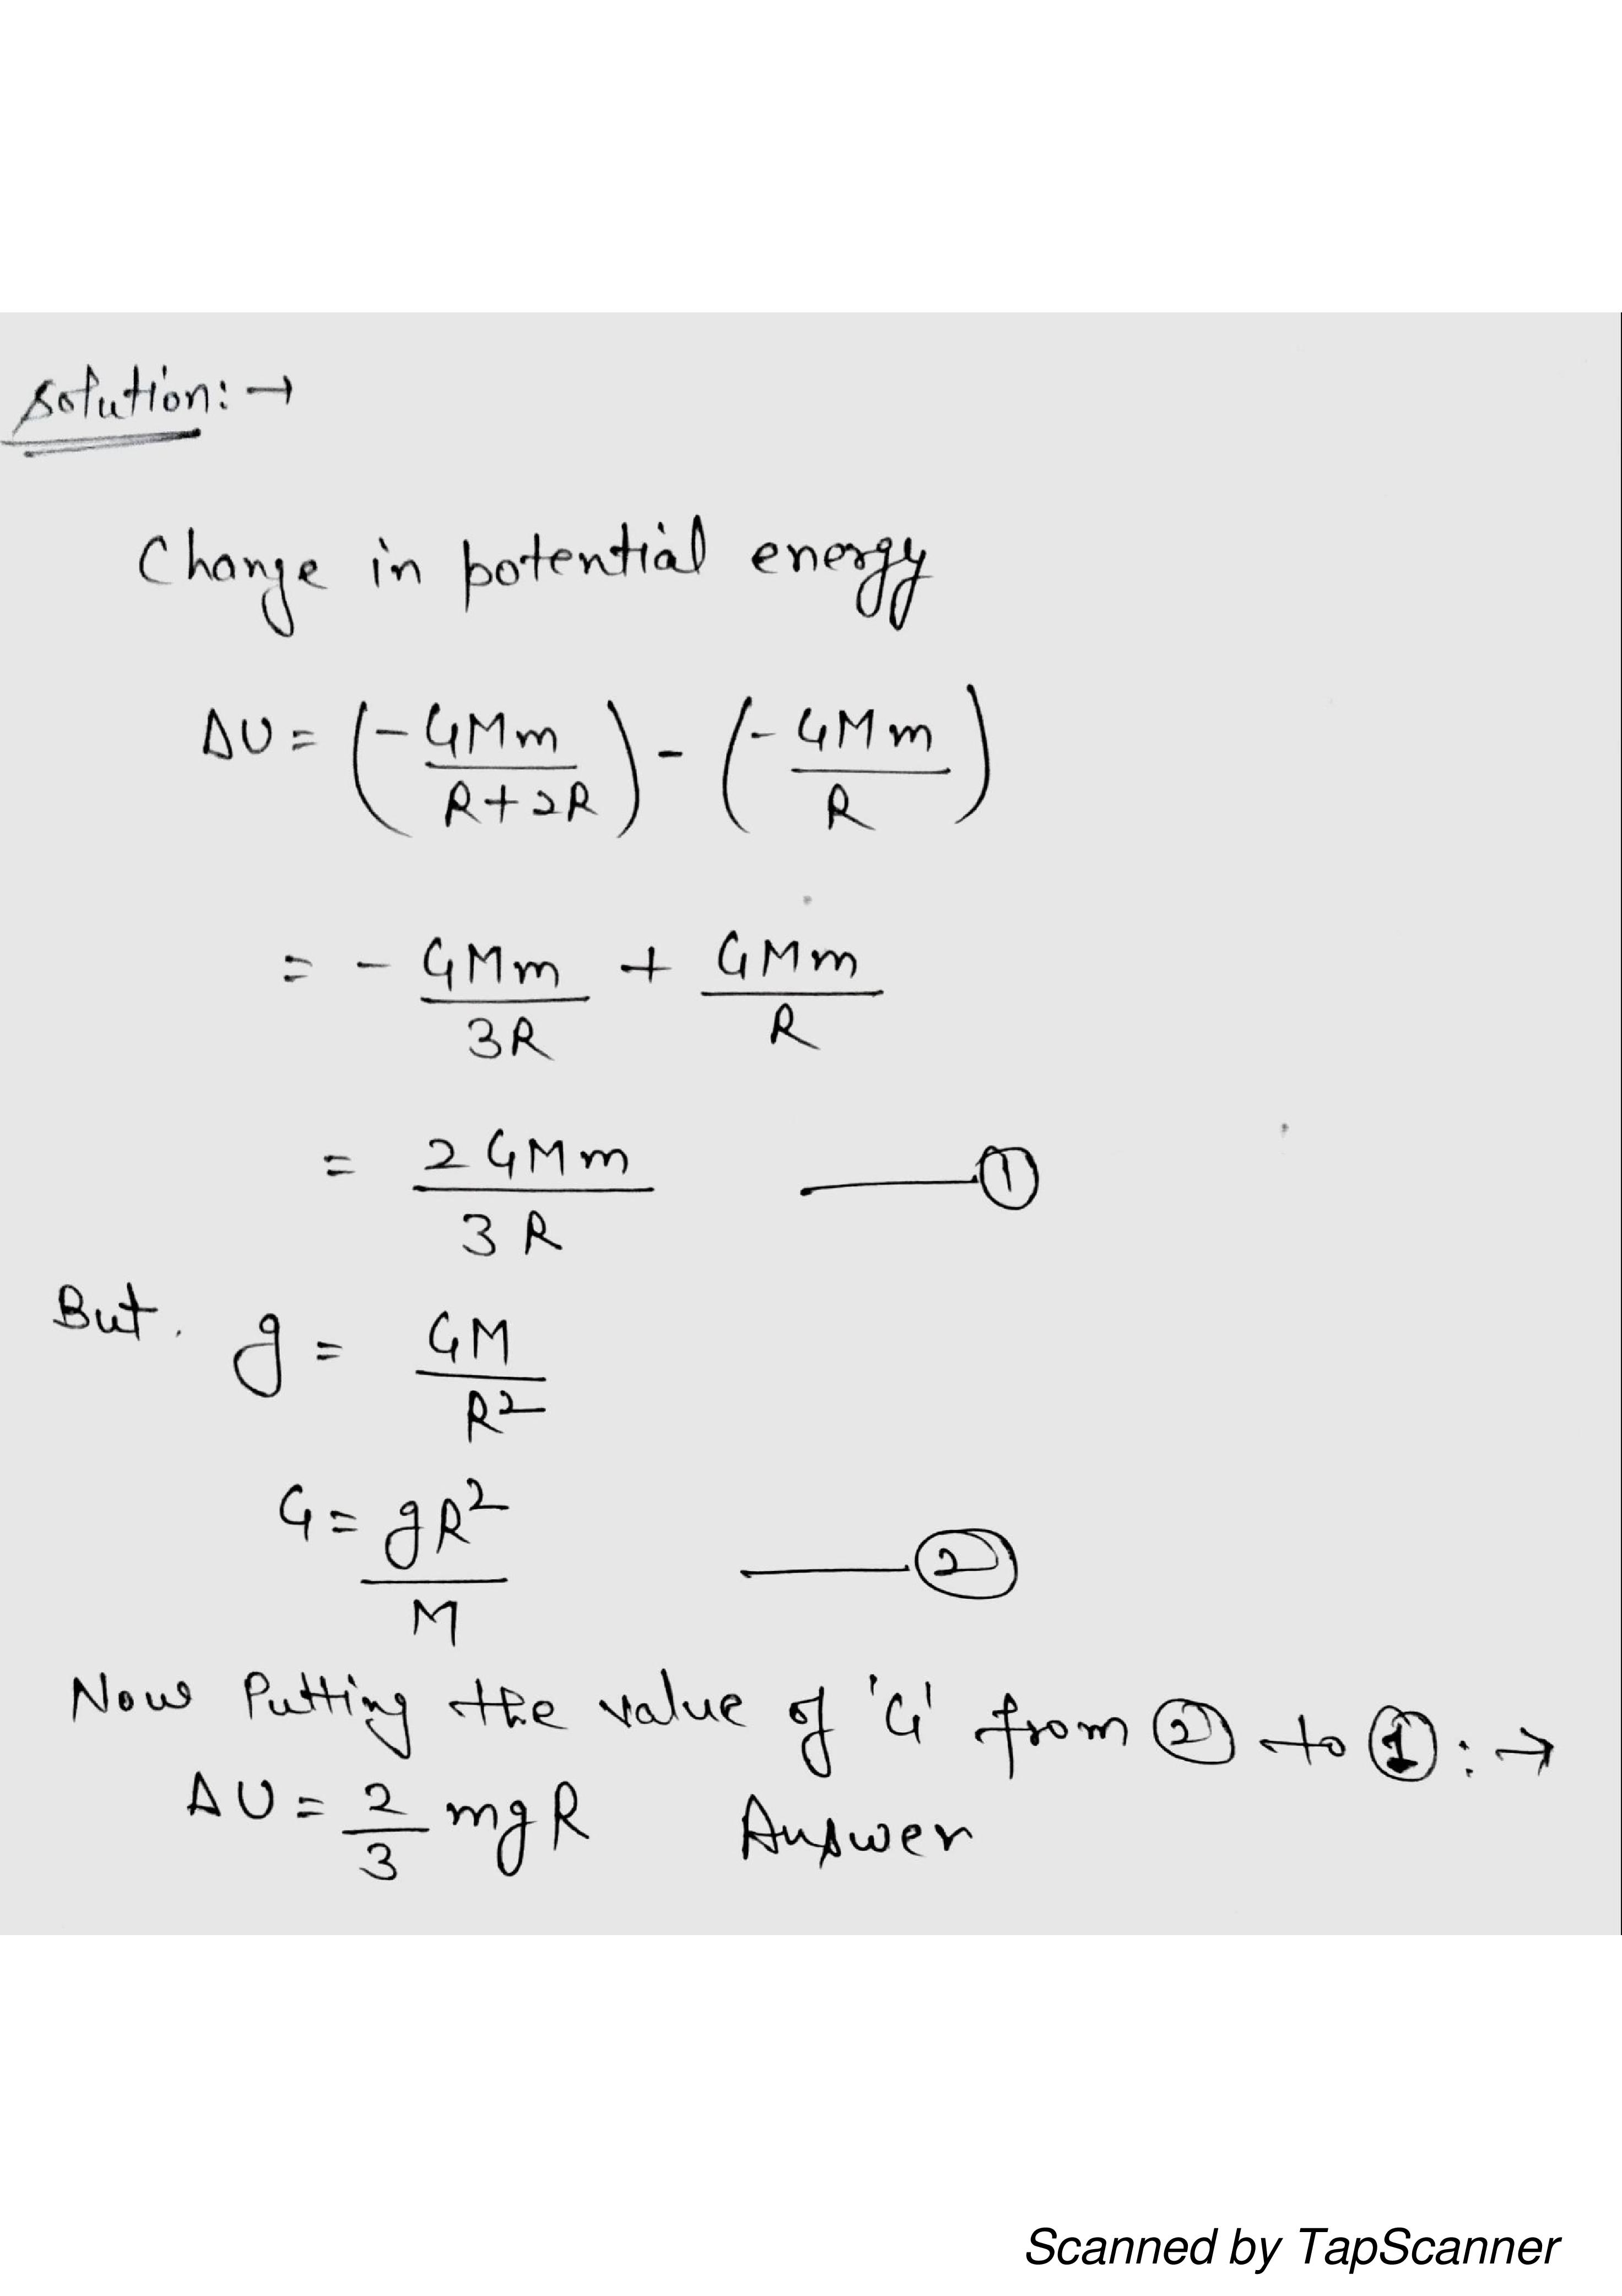 Solution: →
Change in potential energy
ΔU = (-GMm/(R+2R)) - (-GMm/R)
= - GMm/3R + GMm/R
= 2GMm/3R ——①
But, g = GM/R²
G = gR²/M ——②
Now Putting the value of 'G' from ② to ①: →
ΔU = 2/3 mgR Answer
Scanned by TapScanner